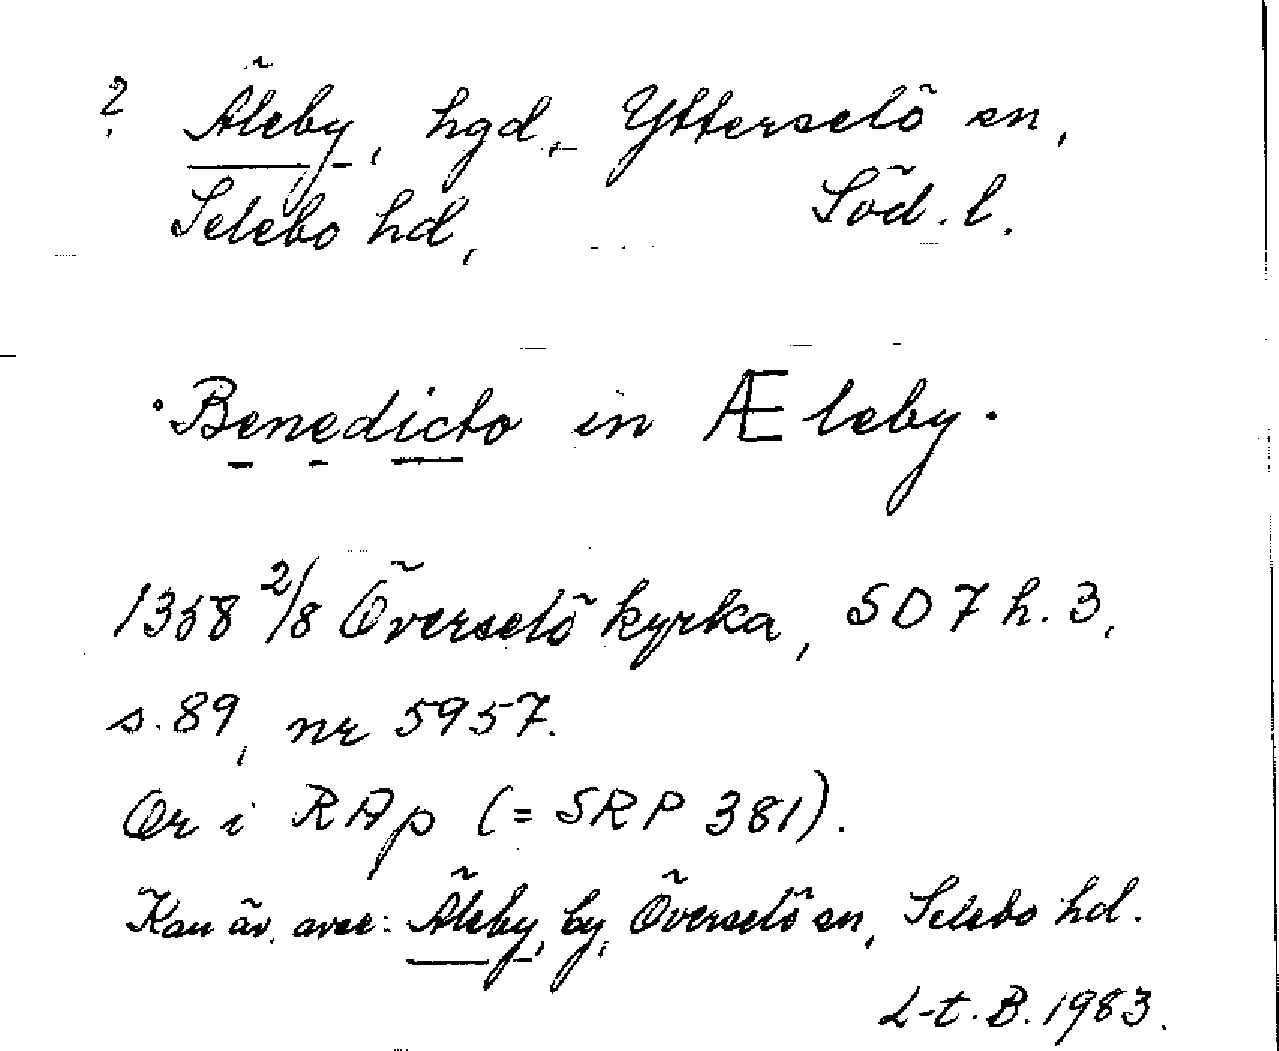 ? Äleby, hgd., Ytterselö sn,
Selebo hd, Söd. l.
·Benedicto in Æleby·
1358 2/8 Överselö kyrka, SD 7 h. 3,
s. 89, nr 5957.
Or i RAp (= SRP 381).
Kan äv. avse: Äleby, by, Överselö sn, Selebo hd.
L-t. B. 1983.